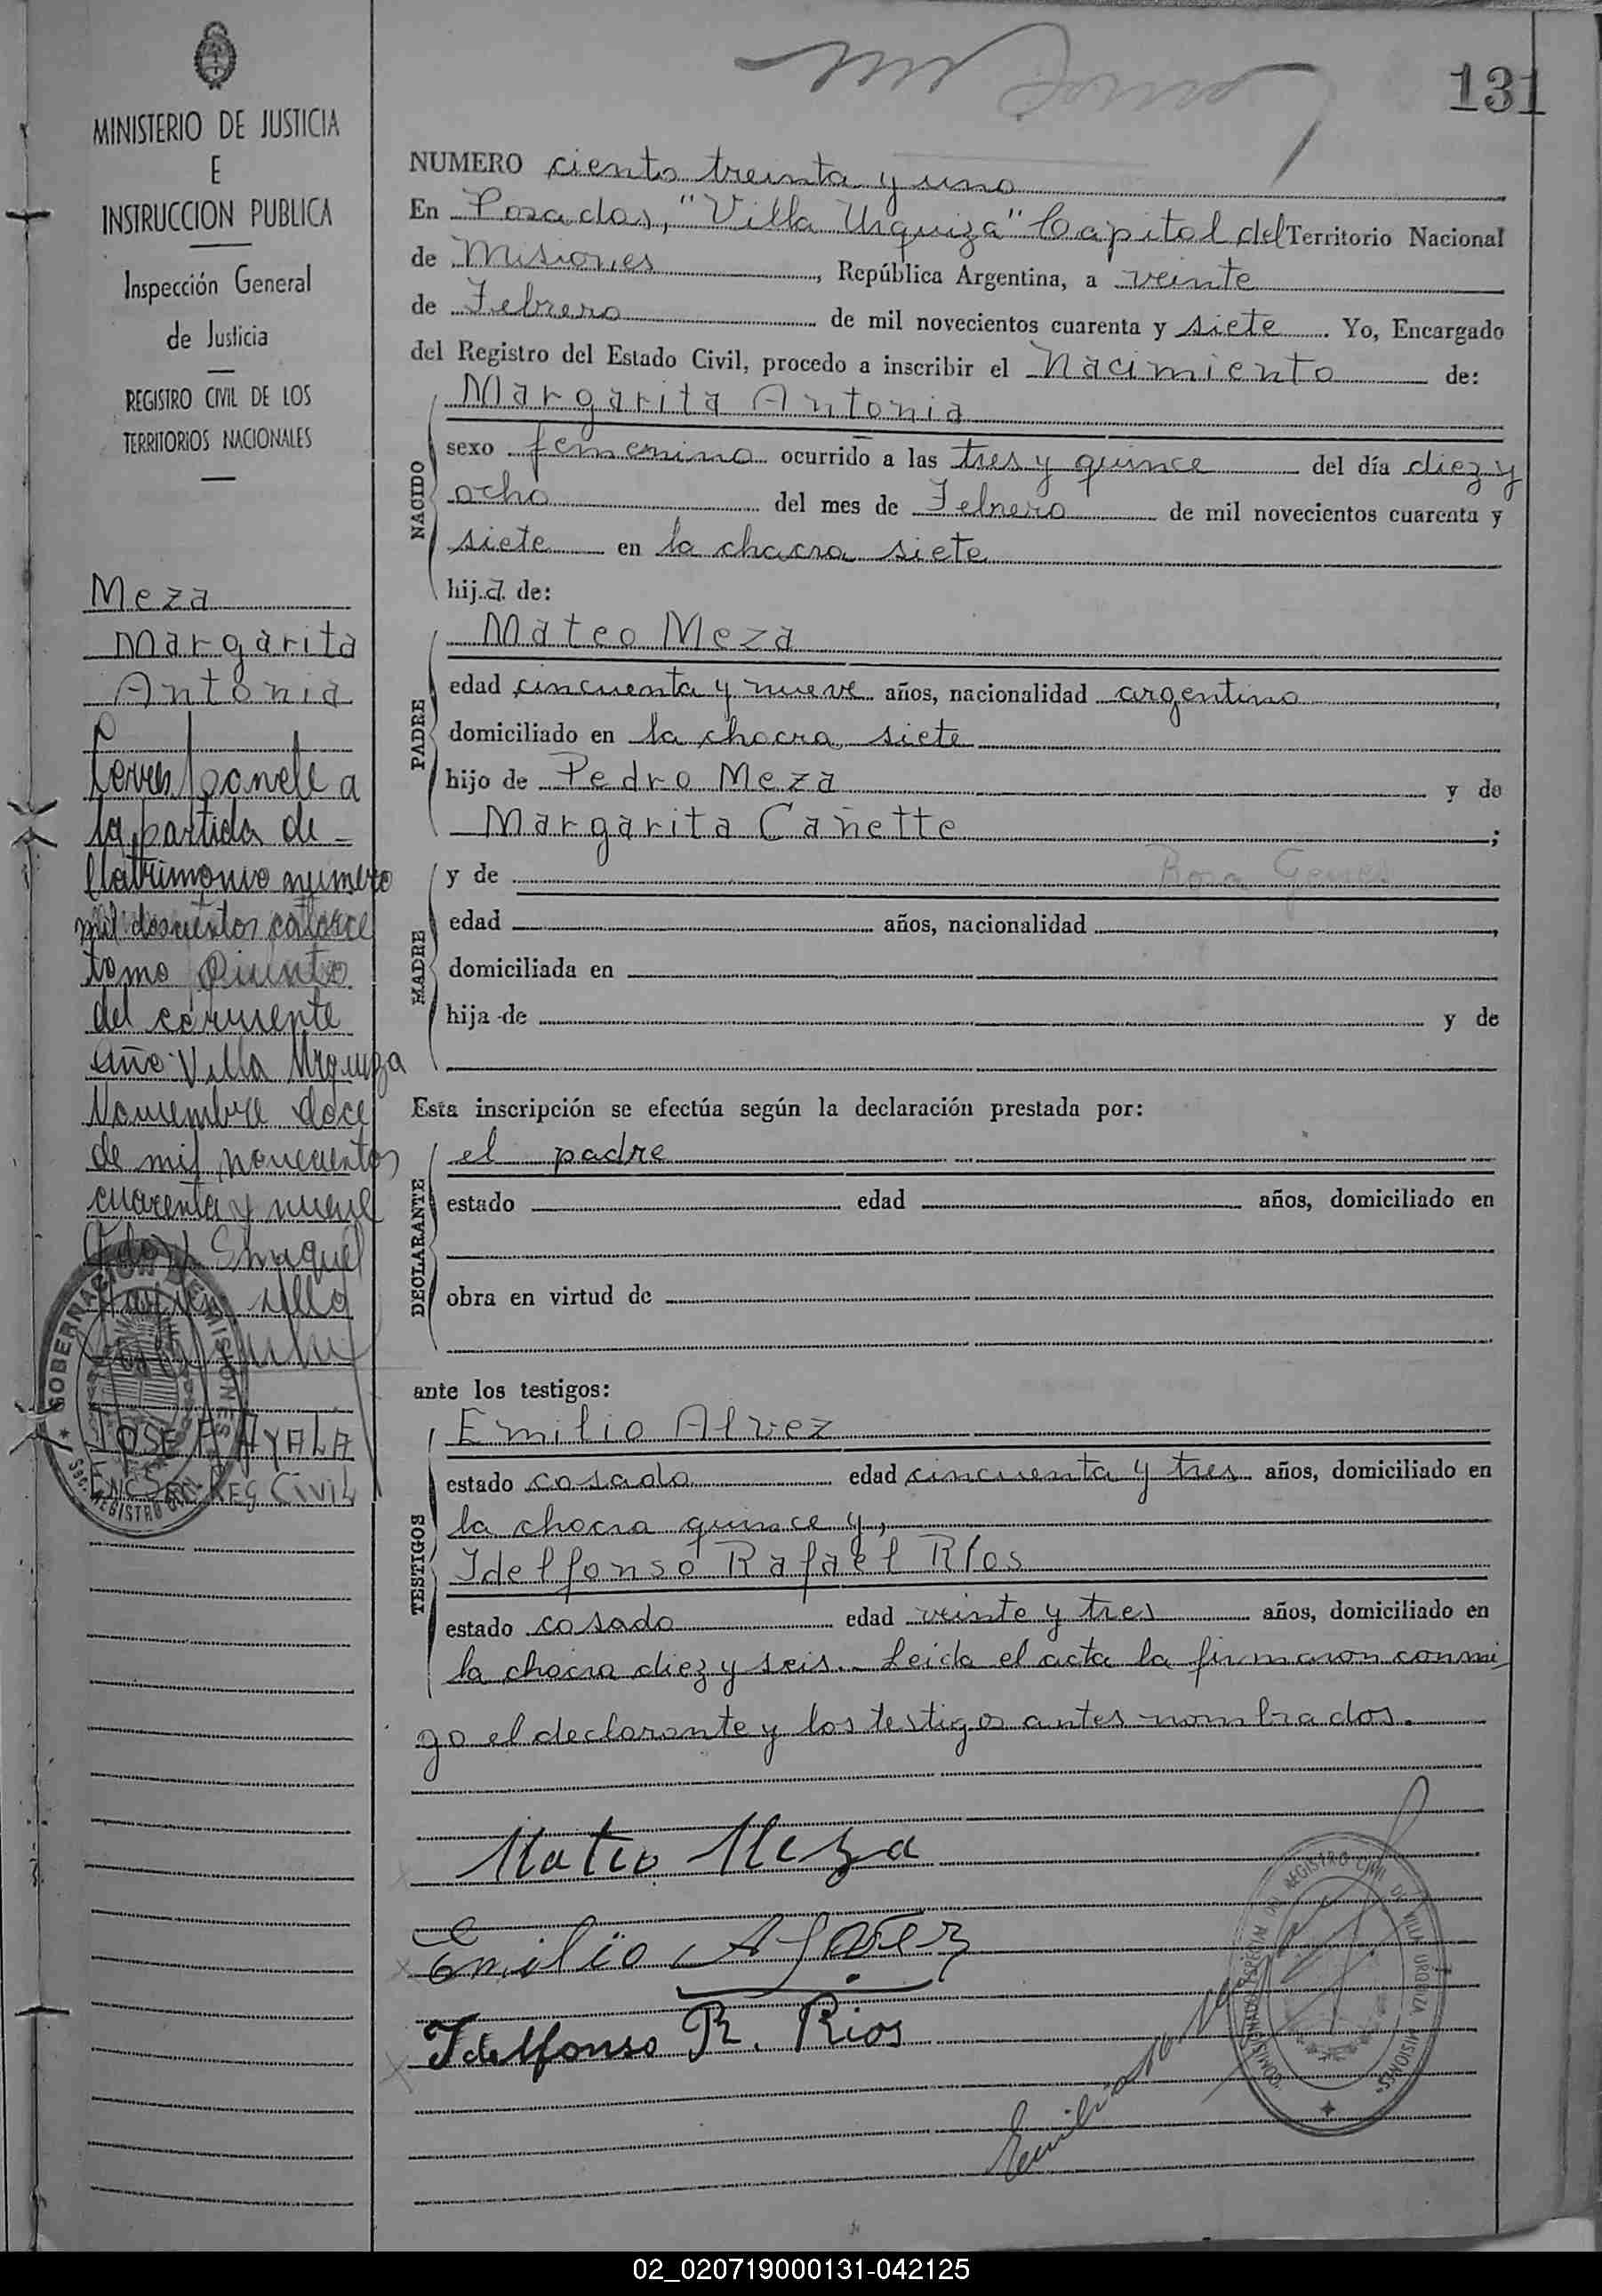 131
MINISTERIO DE JUSTICIA
E
INSTRUCCION PUBLICA
Inspección General
de Justicia
REGISTRO CIVIL DE LOS
TERRITORIOS NACIONALES
Meza
Margarita
Antonia
Corresponde a
la partida de
Matrimonio numero
mil doscientos catorce
tomo Quinto
del corriente
año Villa Urquiza
Noviembre doce
de mil novecientos
cuarenta y nueve
JOSE A AYALA
ENC SEC REG CIVIL
GOBERNACION DE MISIONES
NUMERO ciento treinta y uno
En Posadas, "Villa Urquiza" Capital del Territorio Nacional
de Misiones, República Argentina, a veinte
de Febrero de mil novecientos cuarenta y siete. Yo, Encargado
del Registro del Estado Civil, procedo a inscribir el Nacimiento de:
NACIDO
Margarita Antonia
sexo femenino ocurrido a las tres y quince del día diez y
ocho del mes de Febrero de mil novecientos cuarenta y
siete en la chacra siete
hij.a. de:
PADRE
Mateo Meza
edad cincuenta y nueve años, nacionalidad argentino,
domiciliado en la chacra siete
hijo de Pedro Meza y de
Margarita Cañette;
MADRE
y de Rosa Genes
edad años, nacionalidad,
domiciliada en
hija de y de
Esta inscripción se efectúa según la declaración prestada por:
DECLARANTE
el padre
estado edad años, domiciliado en
obra en virtud de
ante los testigos:
TESTIGOS
Emilio Alvez
estado casado edad cincuenta y tres años, domiciliado en
la chacra quince y,
Idelfonso Rafael Ríos
estado casado edad veinte y tres años, domiciliado en
la chacra diez y seis. Leida el acta la firmaron conmi
go el declarante y los testigos antes nombrados.
Mateo Meza
Emilio Alvez
Idelfonso R. Rios
"COMISIONADO ESPECIAL DEL REGISTRO CIVIL DE VILLA URQUIZA, MISIONES"
02_020719000131-042125